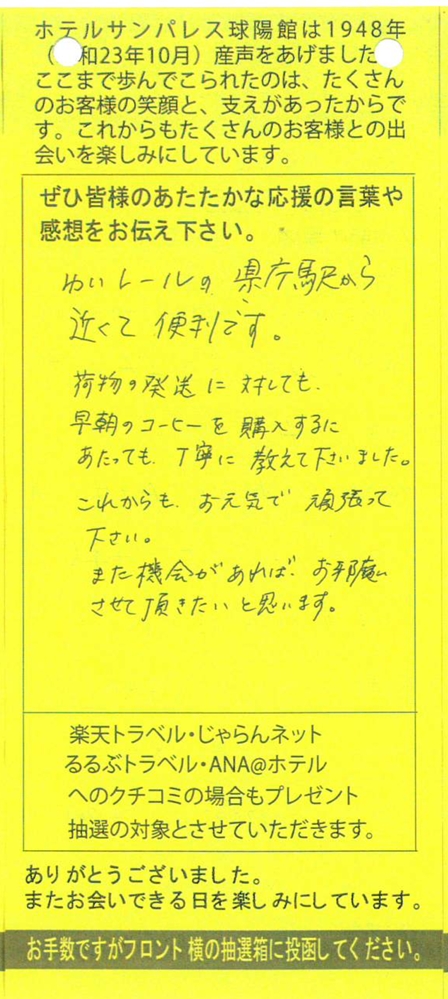 ホテルサンパレス球陽館は1948年
（ 和23年10月）産声をあげました
ここまで歩んでこられたのは、たくさん
のお客様の笑顔と、支えがあったからで
す。これからもたくさんのお客様との出
会いを楽しみにしています。
ぜひ皆様のあたたかな応援の言葉や
感想をお伝え下さい。
ゆいレールの 県庁駅から
近くて 便利です。
荷物の発送に 対しても、
早朝のコーヒーを 購入するに
あたっても、丁寧に 教えて下さいました。
これからも、お元気で 頑張って
下さい。
また機会があれば、お邪魔
させて頂きたいと思います。
楽天トラベル・じゃらんネット
るるぶトラベル・ANA@ホテル
へのクチコミの場合もプレゼント
抽選の対象とさせていただきます。
ありがとうございました。
またお会いできる日を楽しみにしています。
お手数ですがフロント横の抽選箱に投函してください。